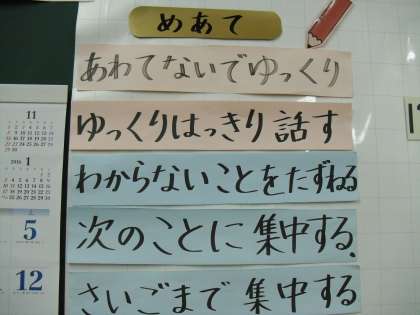 めあて
あわてないでゆっくり
ゆっくりはっきり話す
わからないことをたずねる
次のことに集中する、
さいごまで集中する
11
2016 1
5
12